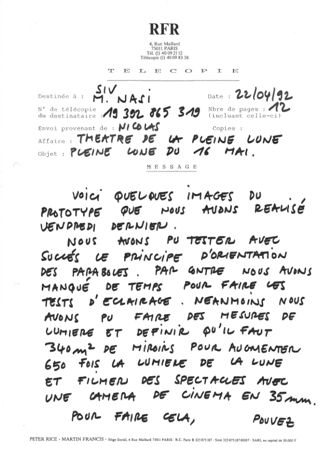 RFR
4, Rue Maillard
75011 PARIS
Tél (1) 40 09 21 12
Télécopie (1) 40 09 83 38
TELECOPIE
SIV
Destinée à : M. NASI Date : 22/04/92
N° de télécopie du destinataire 19 392 865 319 Nbre de pages : 12 (incluant celle-ci)
Envoi provenant de : NICOLAS Copies :
Affaire : THEATRE DE LA PLEINE LUNE
Objet : PLEINE LUNE DU 16 MAI.
MESSAGE
VOICI QUELQUES IMAGES DU
PROTOTYPE QUE NOUS AVONS REALISÉ
VENDREDI DERNIER.
NOUS AVONS PU TESTER AVEC
SUCCÉS LE PRINCIPE D'ORIENTATION
DES PARABOLES. PAR CONTRE NOUS AVONS
MANQUÉ DE TEMPS POUR FAIRE LES
TESTS D'ECLAIRAGE. NEANMOINS NOUS
AVONS PU FAIRE DES MESURES DE
LUMIERE ET DEFINIR QU'IL FAUT
340 m² DE MIROIRS POUR AUGMENTER
650 FOIS LA LUMIERE DE LA LUNE
ET FILMER DES SPECTACLES AVEC
UNE CAMERA DE CINEMA EN 35mm.
POUR FAIRE CELA, POUVEZ
PETER RICE - MARTIN FRANCIS - Siège Social, 4 Rue Maillard 75011 PARIS